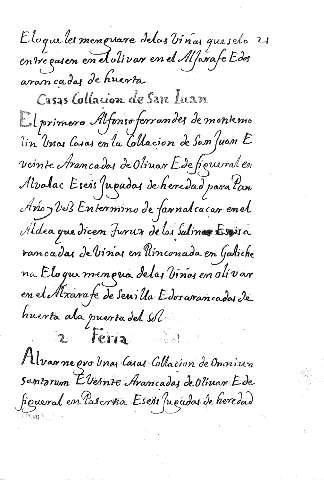 E lo que les menguare de las Viñas que se lo
entregasen en el olivar en el Alxarafe E dos
arancadas de huerta
Casas Collacion de San Juan
El primero Alfonso ferrandes de montemo
lin Unas Casas en la Collacion de San Juan E
veinte Arancadas de Olivar E de figueral en
Alvalac E seis Jugadas de heredad para Pan
Año y Vez En termino de faznalcacar en el
Aldea que dicen de las Salinas E seis a
rancadas de Viñas en Rinconada en Galiche
na E lo que mengua de las Viñas en olivar
en el Alxarafe de Sevilla E dos arancadas de
huerta a la puerta del Sol
2 Feria
Alvar negro Unas Casas Collacion de Omnium
santorum E Veinte Arancadas de Olivar E de
figueral en E seis Jugadas de heredad